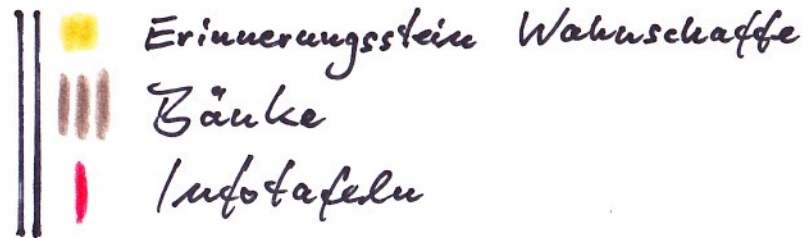 Erinnerungsstein Wahnschaffe
Bänke
Infotafeln